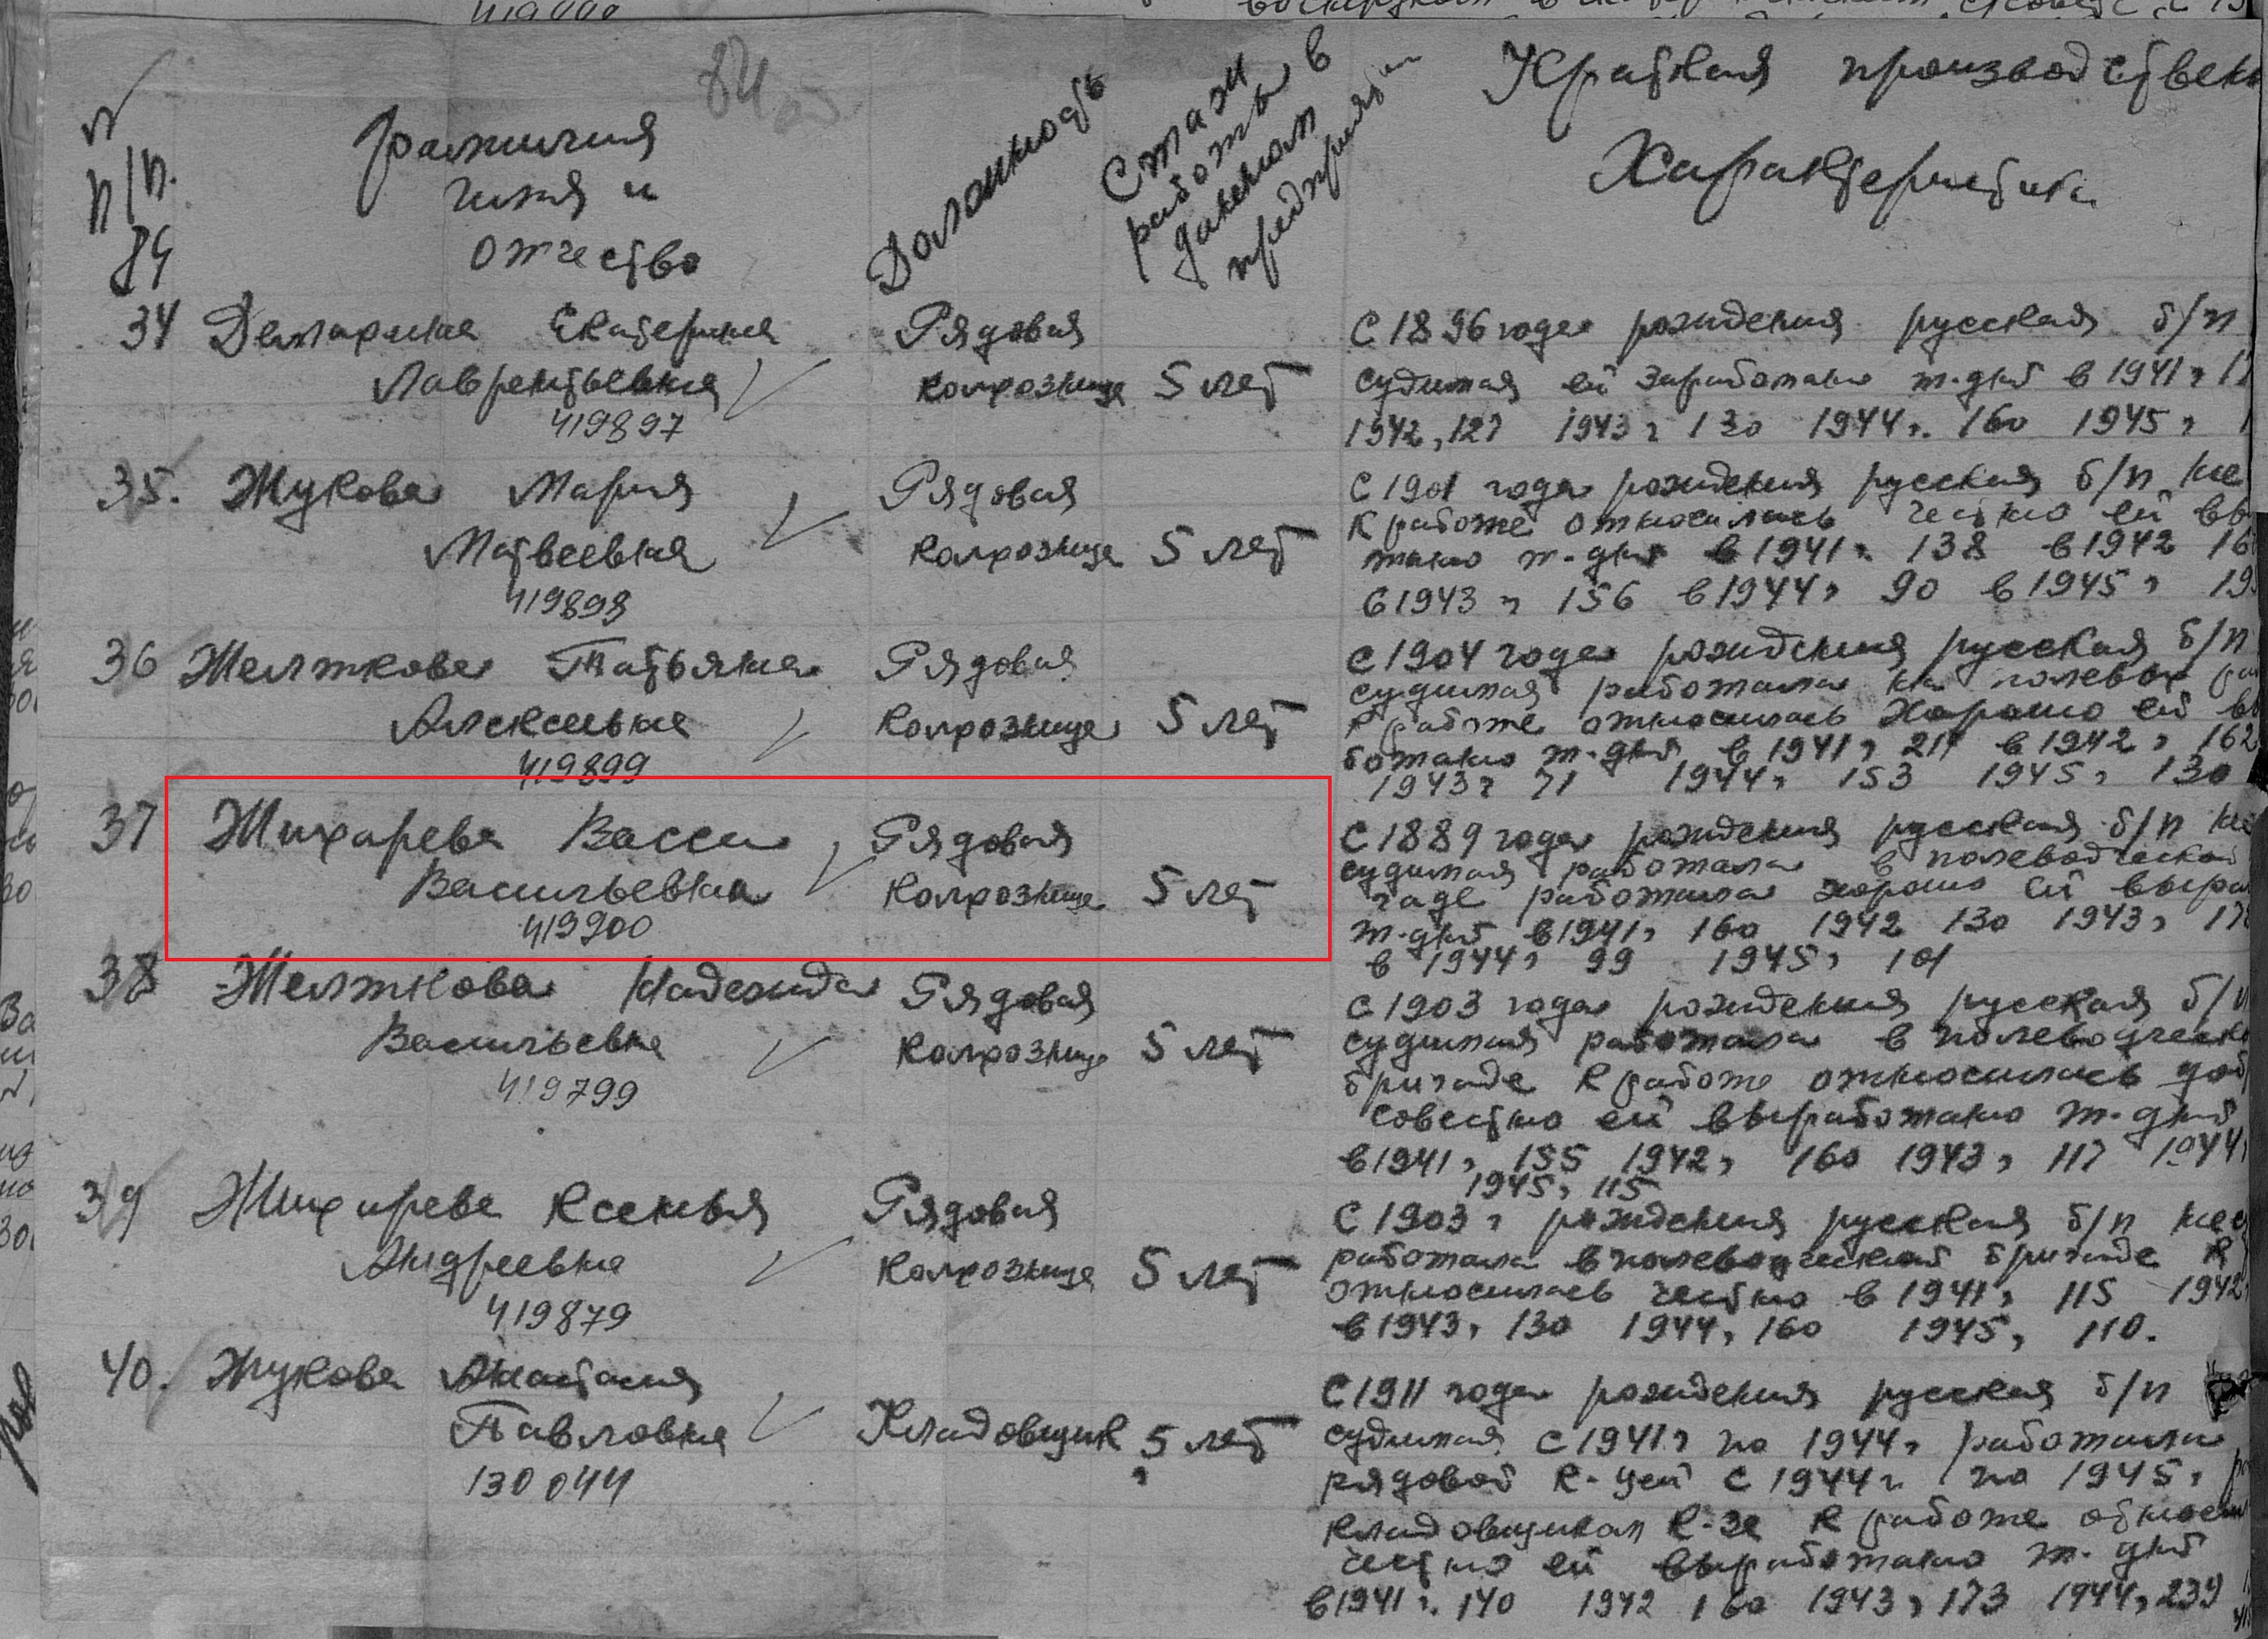 №
п/п.
84
Фамилия
имя и
отчество
Должность
Стаж
работы в
данном
предприятии
Краткая производствен
Характеристика
34 Демархина Екатерина Рядовая С 1896 года рождения русская б/п
Лаврентьевна колхозница 5 лет судимая ей заработано т-дней в 1941 г
419897 1942, 127 1943 г 130 1944 г. 160 1945 г
35. Жукова Мария Рядовая С 1901 года рождения русская б/п не
Матвеевна колхозница 5 лет к работе относилась честно ей
419898 тано т-дней в 1941 г. 138 в 1942 16
в 1943 г 156 в 1944 г 90 в 1945 г 19
36 Желткова Татьяна Рядовая С 1904 года рождения русская б/п
Алексеевна колхознице 5 лет судимая работала на полевых
419899 к работе относилась хорошо ей
ботано т-дней в 1941 г 211 в 1942 г 162
1943 г 71 1944 г 153 1945 г 130
37 Жихарева Васса Рядовая С 1889 года рождения русская б/п не
Васильевна колхознице 5 лет судимая работала в полеводческой
419900 гаде работала хорошо ей выра
т-дней в 1941 г 160 1942 130 1943 г 17
в 1944 г 99 1945 г 101
38 Желткова Надежда Рядовая С 1903 года рождения русская б/п
Васильевна колхозница 5 лет судимая работала в полеводческ
419799 бригаде к работе относилась доб
совестно ей выработано т-дней
в 1941 г 155 1942 г 160 1943 г 117 1944
1945 г 115
39 Жихарева Ксенья Рядовая С 1903 г рождения русская б/п нес
Андреевна колхозница 5 лет работала в полеводческой бригаде к
419879 относилась честно в 1941 г 115 1942
в 1943 г 130 1944 г 160 1945 г 110.
40. Жукова Анастасия С 1911 года рождения русская б/п
Павловна Кладовщик 5 лет судимая с 1941 г по 1944 г работала
130044 рядовой к-цей с 1944 г по 1945 г
кладовщиком к-за к работе относи
честно ей выработано т-дней
в 1941 г. 140 1942 160 1943 г 173 1944 г 239